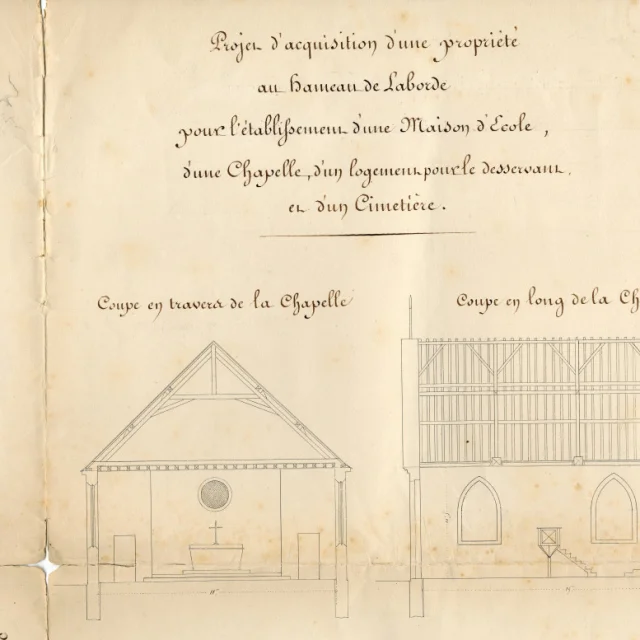 Projet d'acquisition d'une propriété
au hameau de Laborde
pour l'établissement d'une Maison d'Ecole,
d'une Chapelle, d'un logement pour le desservant,
et d'un Cimetière.
Coupe en travers de la Chapelle
Coupe en long de la Ch